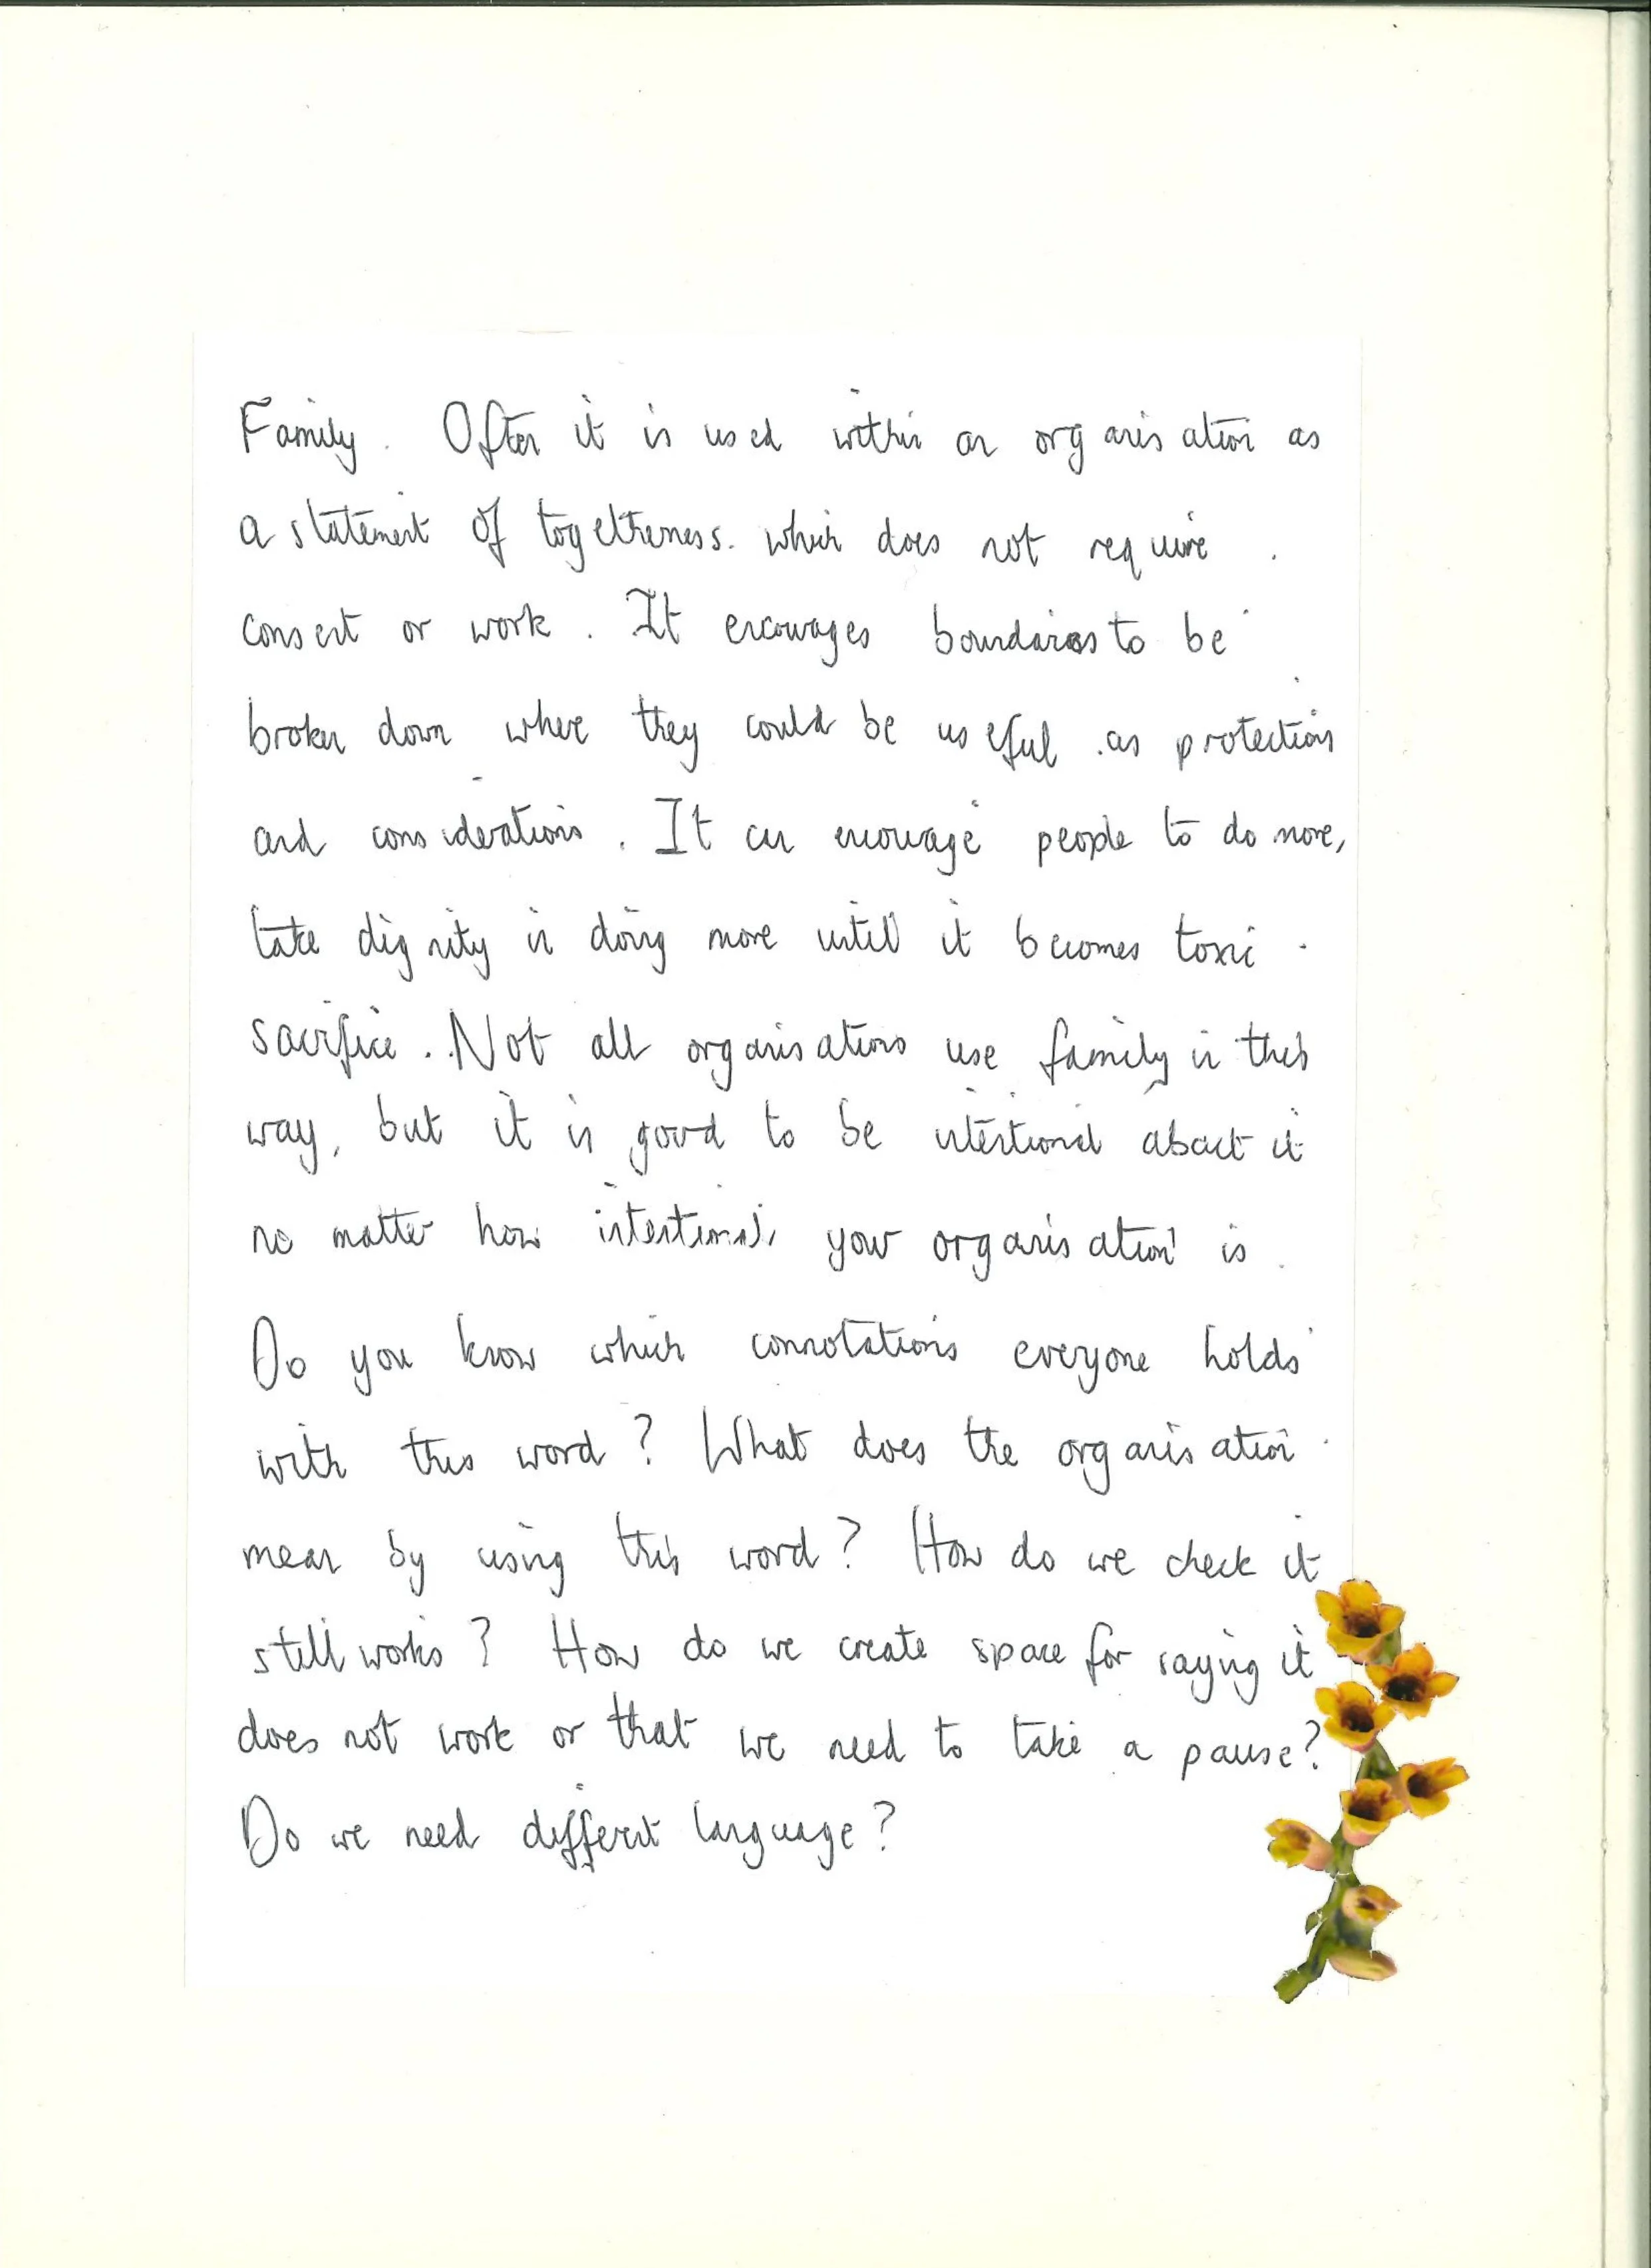 Family. Often it is used within an organisation as
a statement of togetherness. which does not require
consent or work. It encourages boundaries to be
broken down where they could be useful as protection
and considerations. It can encourage people to do more,
take dignity in doing more until it becomes toxic
sacrifice. Not all organisations use family in this
way, but it is good to be intentional about it
no matter how intentional your organisation is.
Do you know which connotations everyone holds
with this word? What does the organisation
mean by using this word? How do we check it
still works? How do we create space for saying it
does not work or that we need to take a pause?
Do we need different language?